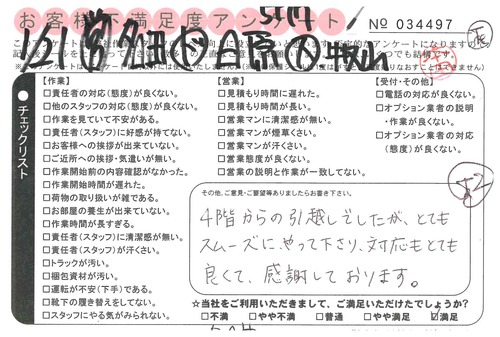 お客様不満足度アンケート
No 034497
【作業】
□責任者の対応(態度)が良くない。
□他のスタッフの対応(態度)が良くない。
□作業を見ていて不安がある。
□責任者(スタッフ)に好感が持てない。
□お客様への挨拶が出来ていない。
□ご近所への挨拶・気遣いが無い。
□作業開始前の内容確認がなかった。
□作業開始時間が遅れた。
□荷物の取り扱いが雑である。
□お部屋の養生が出来ていない。
□作業時間が長すぎる。
□責任者(スタッフ)に清潔感が無い。
□責任者(スタッフ)が汗くさい。
□トラックが汚い。
□梱包資材が汚い。
□運転が不安(下手)である。
□靴下の履き替えをしてない。
□スタッフにやる気がみられない。
【営業】
□見積もり時間に遅れた。
□見積もり時間が長い。
□営業マンに清潔感が無い。
□営業マンが煙草くさい。
□営業マンが汗くさい。
□営業態度が良くない。
□営業の説明と作業が一致してない。
【受付・その他】
□電話の対応が良くない。
□オプション業者の説明
・作業が良くない。
□オプション業者の対応
(態度)が良くない。
●チェックリスト
その他、ご意見・ご要望等ありましたらお書き下さい。
4階からの引越しでしたが、とても
スムーズにやって下さり、対応もとても
良くて、感謝しております。
☆当社をご利用いただきまして、ご満足いただけたでしょうか?
□不満 □やや不満 □普通 □やや満足 ☑満足